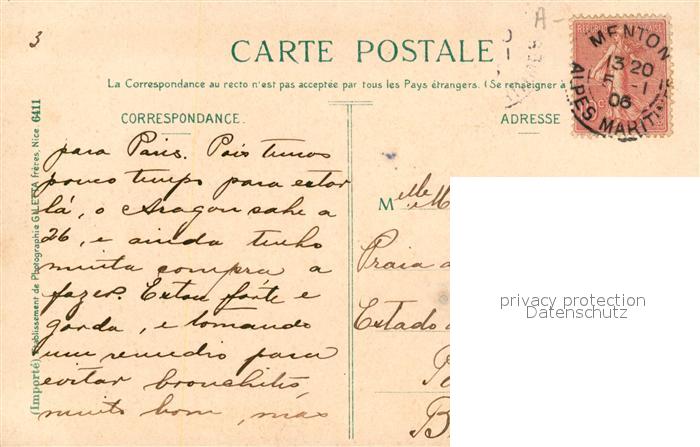 3
A-
CARTE POSTALE
La Correspondance au recto n'est pas acceptée par tous les Pays étrangers. (Se renseigner à
CORRESPONDANCE.
ADRESSE
MENTON
13 20
5 -1
06
ALPES MARITIMES
para Paris. Pois temos
pouco tempo para estar
lá, o Aragon sahe a
26, e ainda tenho
muita compra a
fazer. Estou forte e
gorda, e tomando
um remedio para
evitar bronchitis
muito bom, mas
M elle M
Praia
Estado
B
(Importé) Etablissement de Photographie GILETTA frères, Nice. 6411
privacy protection
Datenschutz